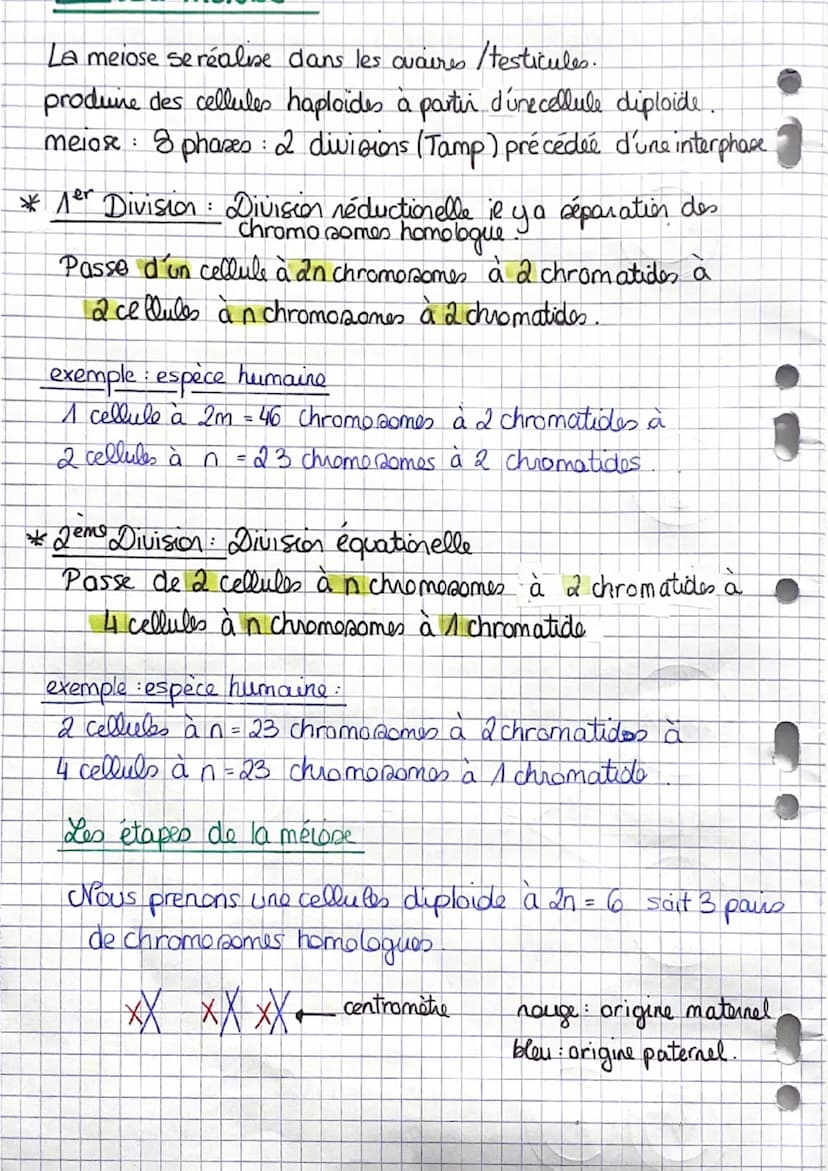 La meiose se réalise dans les ovaires / testicules.
produire des cellules haploides à partir d'une cellule diploide.
meiose : 8 phases : 2 divisions (Tamp) précédéé d'une interphase
* 1er Division : Division réductionelle il y a séparation des
chromosomes homologue.
Passe d'un cellule à 2n chromosomes à 2 chromatides à
2 cellules à n chromosomes à 2 chromatides.
exemple : espèce humaine
1 cellule à 2m = 46 chromosomes à 2 chromatides à
2 cellules à n = 23 chromosomes à 2 chromatides.
* 2ème Division : Division équationelle
Passe de 2 cellules à n chromosomes à 2 chromatides à
4 cellules à n chromosomes à 1 chromatide
exemple : espèce humaine :
2 cellules à n = 23 chromosomes à 2 chromatides à
4 celluls à n = 23 chromosomes à 1 chromatide.
Les étapes de la méiose
Nous prenons une cellules diploide à 2n = 6 soit 3 pairs
de chromosomes homologues.
centromètre rouge : origine maternel
bleu : origine paternel.